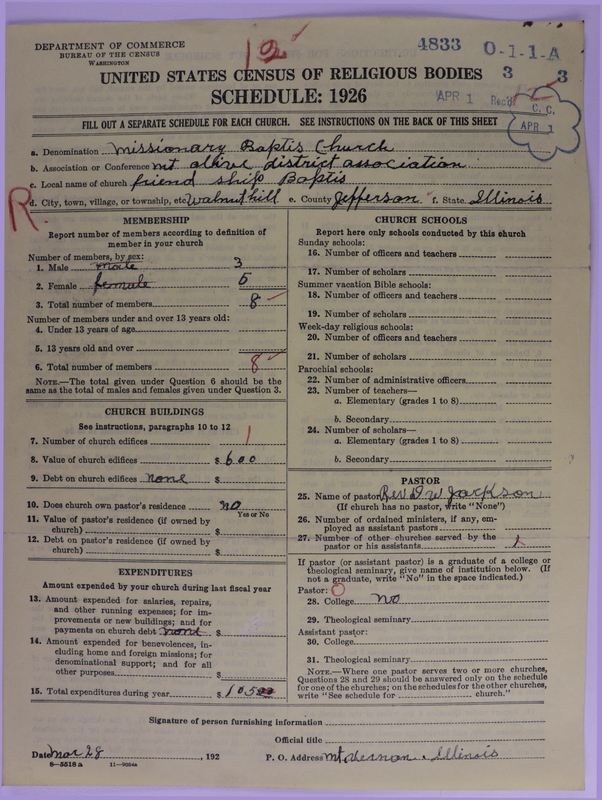 12
4833 0-1-1-A
3 3
APR 1 Rec'd C. C.
APR 1
DEPARTMENT OF COMMERCE
BUREAU OF THE CENSUS
WASHINGTON
UNITED STATES CENSUS OF RELIGIOUS BODIES
SCHEDULE: 1926
FILL OUT A SEPARATE SCHEDULE FOR EACH CHURCH. SEE INSTRUCTIONS ON THE BACK OF THIS SHEET
a. Denomination missionary Baptis Church
b. Association or Conference mt olhive district association
c. Local name of church friend ship Baptis
R. d. City, town, village, or township, etc walnut hill e. County Jefferson f. State Illinois
MEMBERSHIP
Report number of members according to definition of
member in your church
Number of members, by sex:
1. Male male 3
2. Female female 5
3. Total number of members 8
Number of members under and over 13 years old:
4. Under 13 years of age
5. 13 years old and over
6. Total number of members 8
NOTE.—The total given under Question 6 should be the
same as the total of males and females given under Question 3.
CHURCH BUILDINGS
See instructions, paragraphs 10 to 12
7. Number of church edifices 1
8. Value of church edifices $ 600
9. Debt on church edifices none $
10. Does church own pastor's residence no
Yes or No
11. Value of pastor's residence (if owned by
church) $
12. Debt on pastor's residence (if owned by
church) $
EXPENDITURES
Amount expended by your church during last fiscal year
13. Amount expended for salaries, repairs,
and other running expenses; for im-
provements or new buildings; and for
payments on church debt none $
14. Amount expended for benevolences, in-
cluding home and foreign missions; for
denominational support; and for all
other purposes $
15. Total expenditures during year $ 10500
CHURCH SCHOOLS
Report here only schools conducted by this church
Sunday schools:
16. Number of officers and teachers
17. Number of scholars
Summer vacation Bible schools:
18. Number of officers and teachers
19. Number of scholars
Week-day religious schools:
20. Number of officers and teachers
21. Number of scholars
Parochial schools:
22. Number of administrative officers
23. Number of teachers—
a. Elementary (grades 1 to 8)
b. Secondary
24. Number of scholars—
a. Elementary (grades 1 to 8)
b. Secondary
PASTOR
25. Name of pastor Rev D W Jackson
(If church has no pastor, write "None")
26. Number of ordained ministers, if any, em-
ployed as assistant pastors
27. Number of other churches served by the
pastor or his assistants 1
If pastor (or assistant pastor) is a graduate of a college or
theological seminary, give name of institution below. (If
not a graduate, write "No" in the space indicated.)
Pastor: 0
28. College no
29. Theological seminary
Assistant pastor:
30. College
31. Theological seminary
NOTE.—Where one pastor serves two or more churches,
Questions 28 and 29 should be answered only on the schedule
for one of the churches; on the schedules for the other churches,
write "See schedule for church."
Signature of person furnishing information
Official title
Date Mar 28, 192 P. O. Address mt vernon, Illinois
8—5518 a 11—9084a